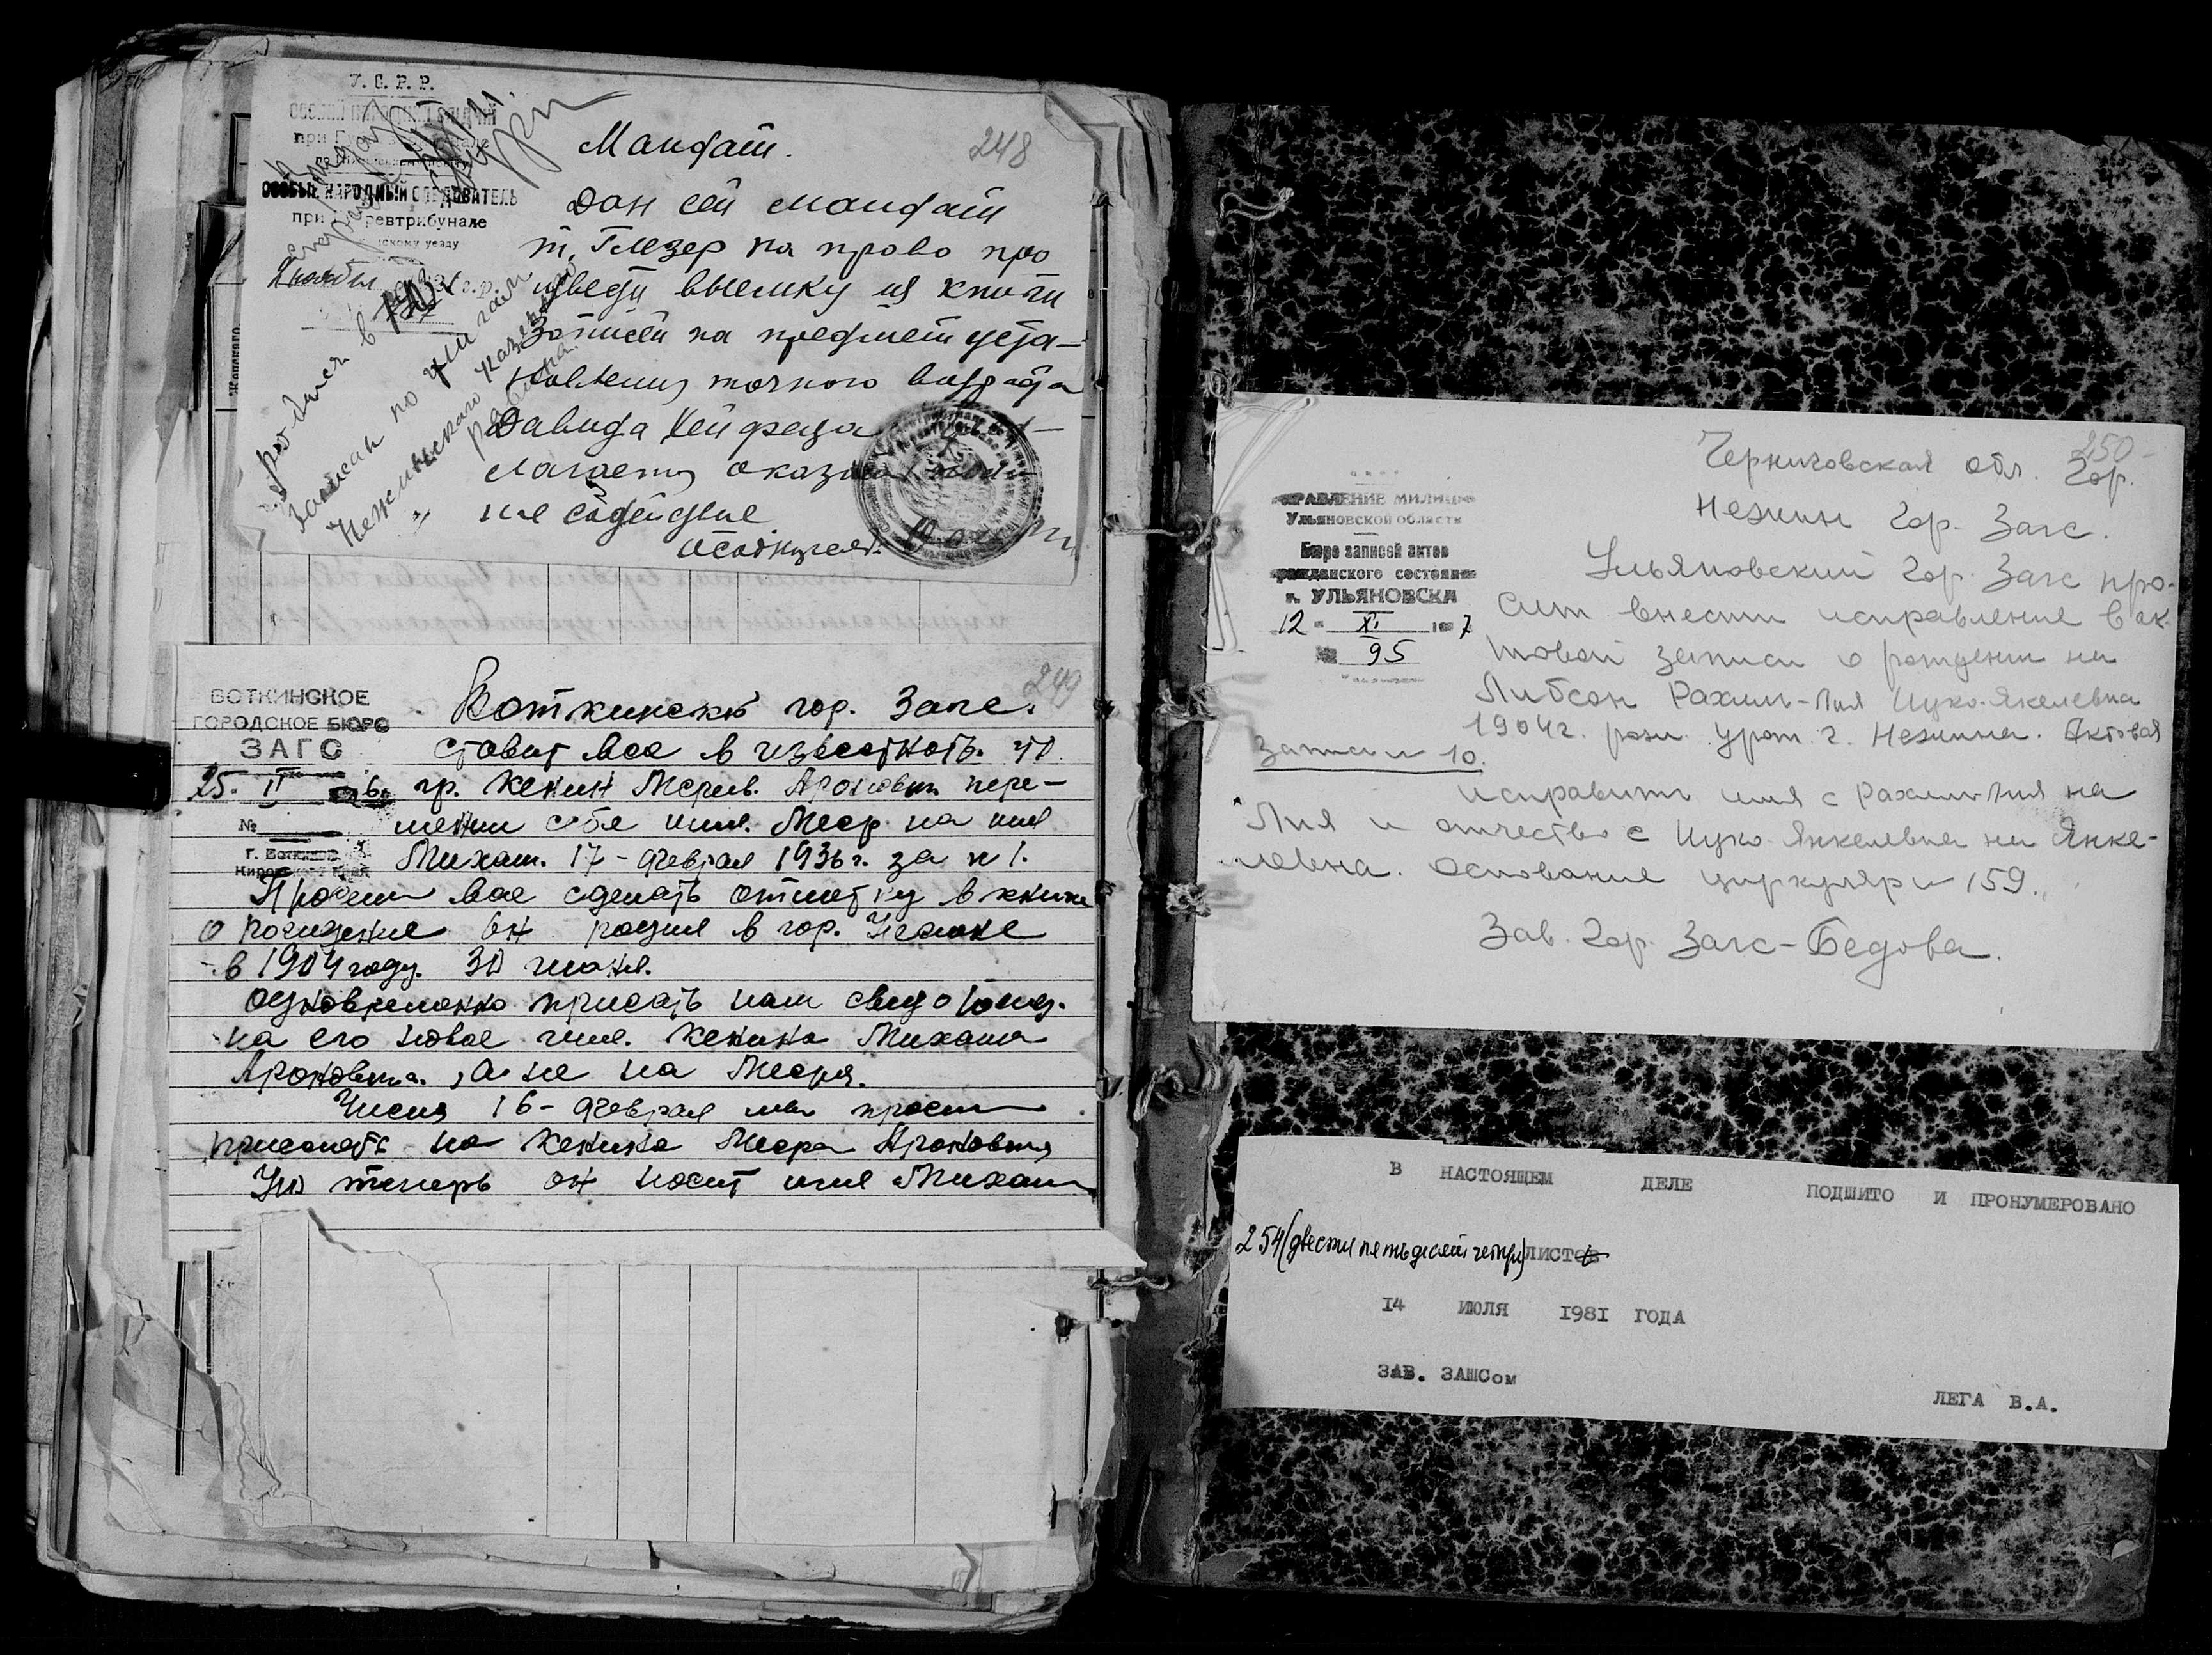 248
У. С. Р. Р.
ОСОБЫЙ НАРОДНЫЙ СЛЕДОВАТЕЛЬ
при ревтрибунале
скому уезду
Мандат.
Дан сей мандат
т. Глезер на право про
изведи выемку из книги
записей на предмет уста-
новления точного возраста
Давида Хейфеца
оказа
ние содействие
родился в
записан по книгам
Нежинского казенного
раввина
249
ВОТКИНСКОЕ
ГОРОДСКОЕ БЮРО
ЗАГС
25. II 6.
№
г. Воткинск
Кировского Края
Воткинский гор. Загс.
ставит вас в известность. что
гр. Хенин Меер Аронович пере-
менил себе имя. Меер на имя
Михаил. 17 - февраля 1936 г. за н 1.
Просим вас сделать отметку в книге
о рождение он родился в гор. Нежине
в 1904 году. 30 июня.
одновременно прислать нам свид о рожд.
на его новое имя. Хенина Михаила
Ароновича, а не на Меера.
Числа 16 - февраля мы просили
прислать на Хенина Меера Ароновича
Но теперь он носит имя Михаил
250
УПРАВЛЕНИЕ МИЛИЦИИ
Ульяновской области
Бюро записей актов
гражданского состояния
г. УЛЬЯНОВСКА
12 - XI 7
№ 95
Черниговская обл. гор.
Нежин гор. Загс.
Ульяновский гор. Загс про-
сит внести исправление в ак-
товой записи о рождении на
Либсон Рахиль-Лия Ицко-Янкелевна
1904 г. рожд. урож. г. Нежина. Актовая
запись н 10.
Исправить имя с Рахиль-Лия на
Лия и отчество с Ицко-Янкелевна на Янке-
левна. Основание циркуляр н 159.
Зав. Гор. Загс - Бедова.
В НАСТОЯЩЕМ ДЕЛЕ ПОДШИТО И ПРОНУМЕРОВАНО
254 (двести пятьдесят четыре) ЛИСТОВ
14 ИЮЛЯ 1981 ГОДА
ЗАВ. ЗАГСом
ЛЕГА В.А.